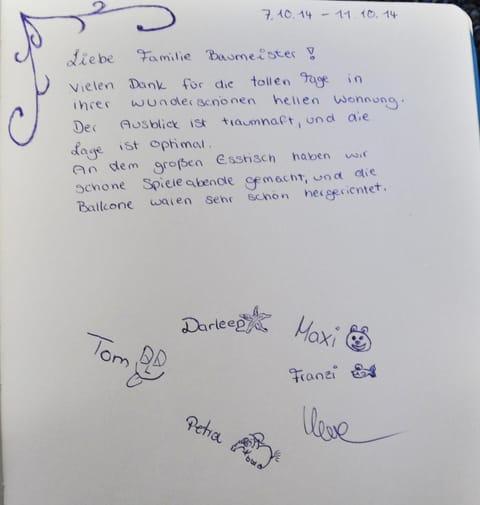 7.10.14 – 11.10.14
Liebe Familie Baumeister!
Vielen Dank für die tollen Tage in
ihrer wunderschönen hellen Wohnung.
Der Ausblick ist traumhaft, und die
Lage ist optimal.
An dem großen Esstisch haben wir
schöne Spieleabende gemacht, und die
Balkone waren sehr schön hergerichtet.
Darleen
Maxi
Tom
Franzi
Petra